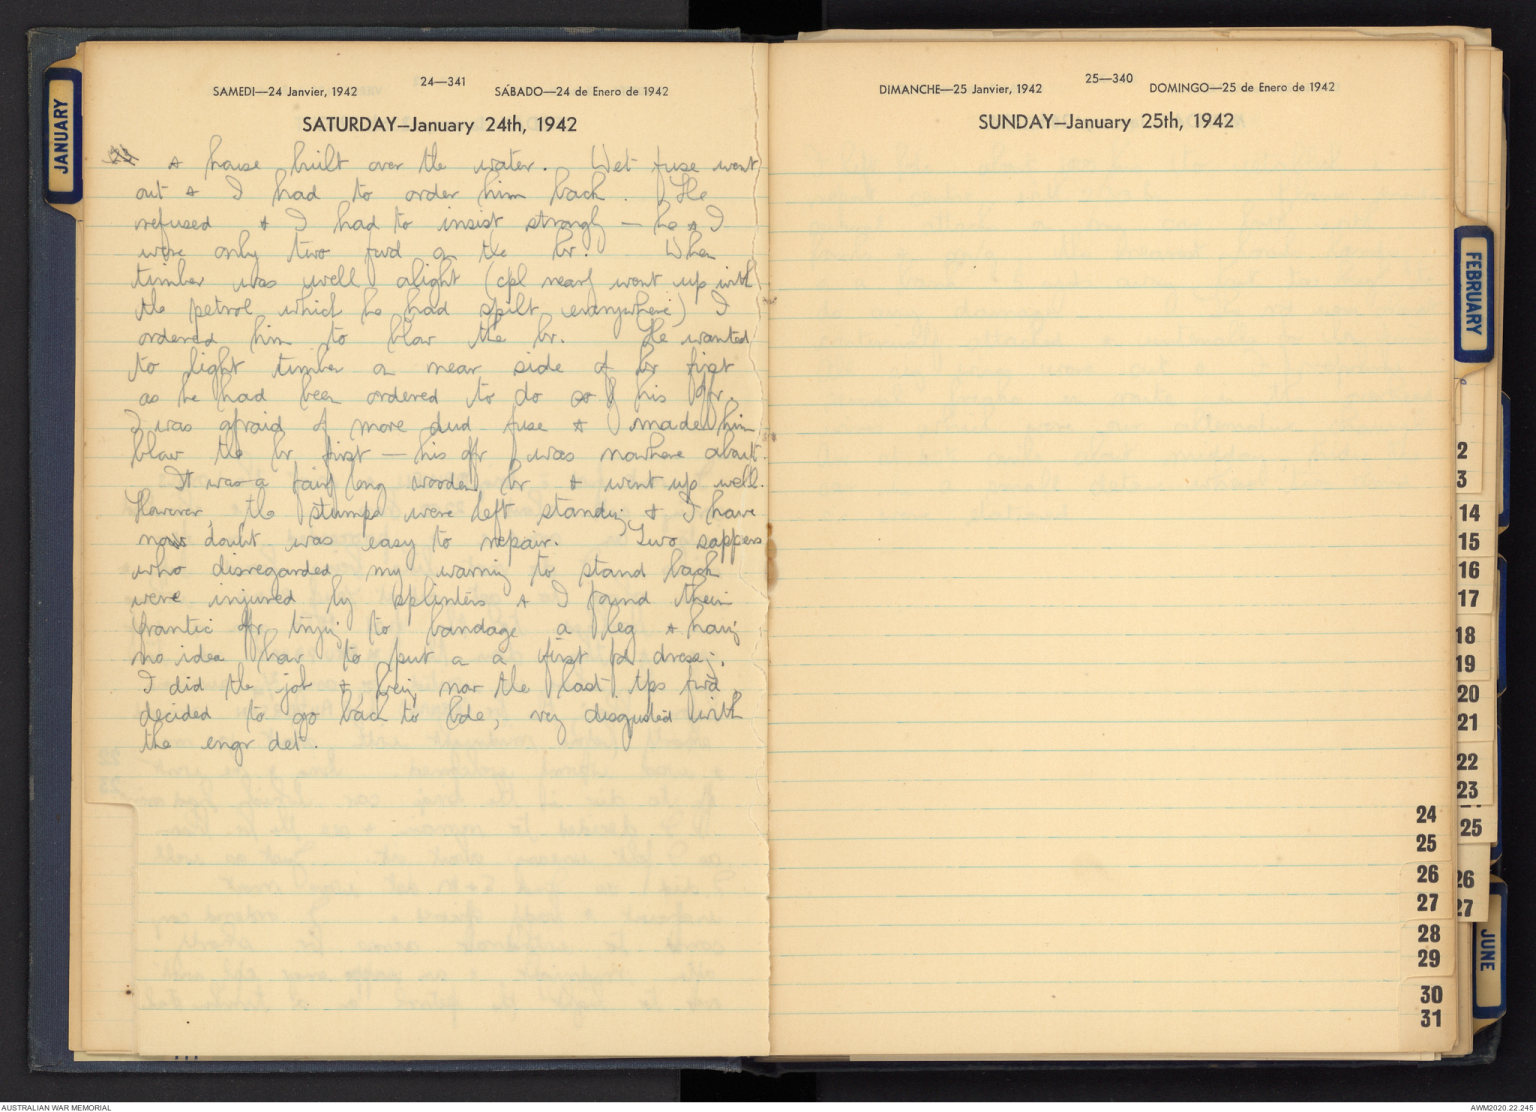 JANUARY
24—341
SAMEDI—24 Janvier, 1942
SÁBADO—24 de Enero de 1942
SATURDAY—January 24th, 1942
& house built over the water. Wet fuse went
out & I had to order him back. He
refused & I had to insist strongly — he & I
were only two fwd on the br. When
timber was well alight (cpl nearly went up with
the petrol which he had spilt everywhere) I
ordered him to blow the br. He wanted
to light timber on near side of br first
as he had been ordered to do so by his offr.
I was afraid of more dud fuse & made him
blow the br first — his offr was nowhere about.
It was a fairly long wooden br & went up well.
However, the stumps were left standing & I have
no doubt was easy to repair. Two sappers
who disregarded my warning to stand back
were injured by splinters & I found their
frantic offr trying to bandage a leg & having
no idea how to put on a first fd dressing.
I did the job & being now the last tps fwd
decided to go back to bde, very disgusted with
the engr det.
25—340
DIMANCHE—25 Janvier, 1942
DOMINGO—25 de Enero de 1942
SUNDAY—January 25th, 1942
FEBRUARY
2
3
14
15
16
17
18
19
20
21
22
23
24
25
25
26
26
27
27
28
29
30
31
JUNE
AUSTRALIAN WAR MEMORIAL
AWM2020.22.245